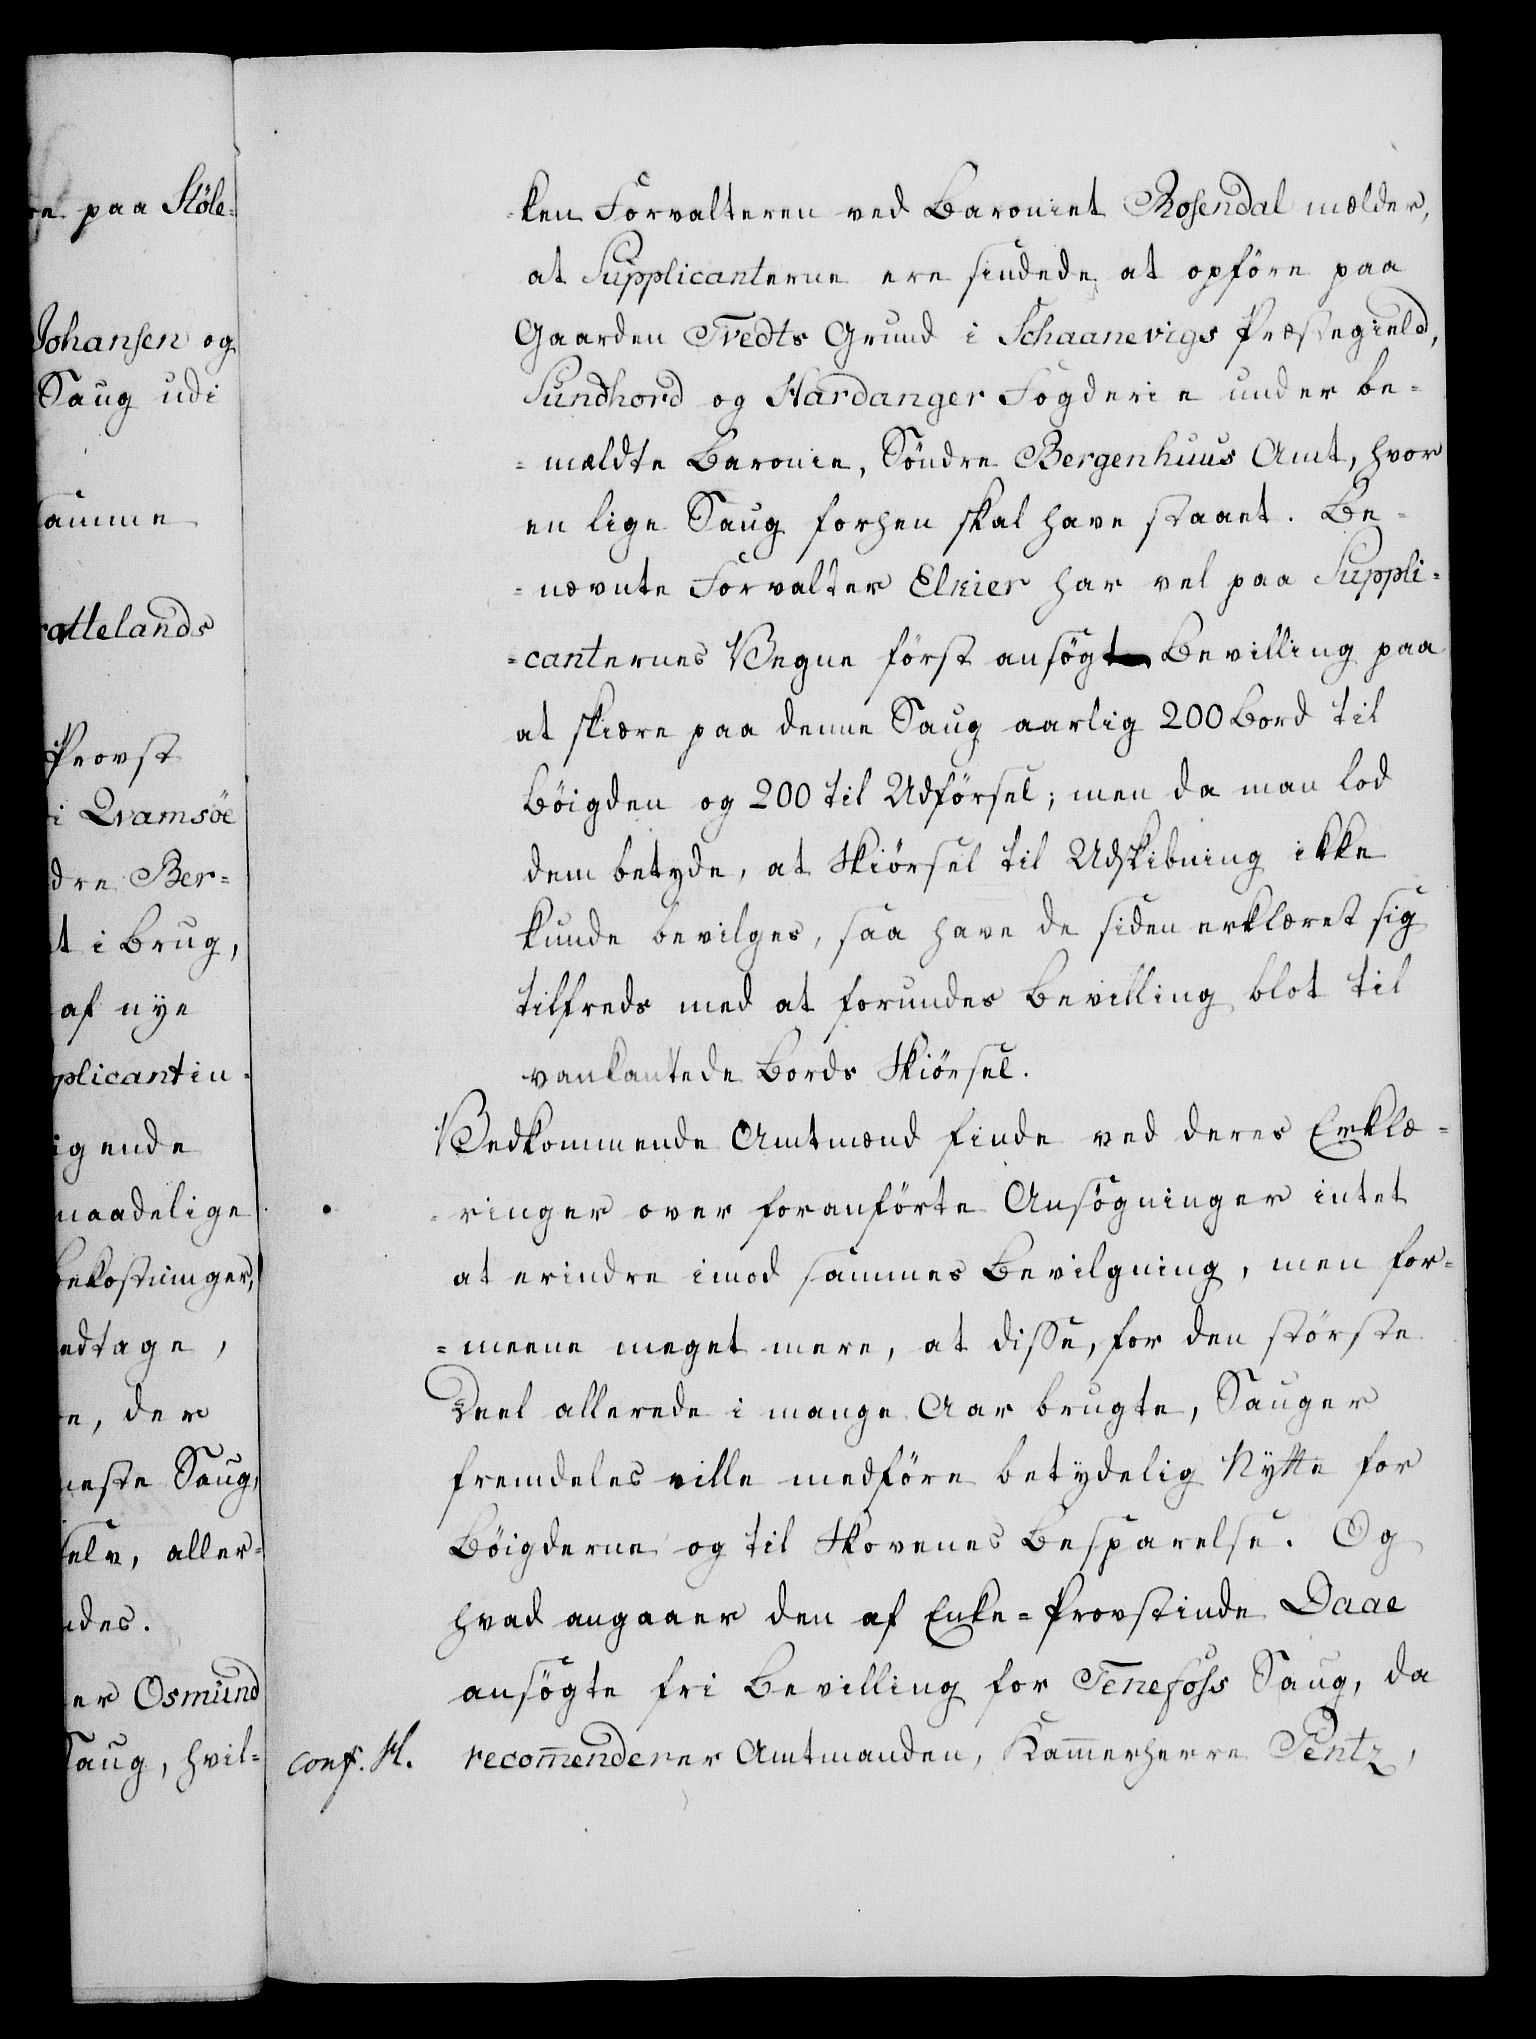 re paa Støle-
Johansen og
Saug udi
samme
rattelands
Provst
i Qvamsöe
dre Ber-
t i Brug,
af nye
plicantin-
igende
naadelige
bekostninger,
edtage,
e, der
neste Saug,
selv, aller-
ndes.
er Osmund
Saug, hvil-
-ken Forvalteren ved Baroniet Rosendal melder,
at Supplicanterne ere sindede at opföre paa
Gaarden Tvedts Grund i Schaanevigs Præstegield,
Sundhord og Hardanger Fogderie under be-
-meldte Baronie, Söndre Bergenhuus Amt, hvor
en lige Saug forhen skal have staaet. Be-
-nævnte Forvalter Elkier har vel paa Suppli-
-canternes Vegne först ansögt Bevilling paa
at skiere paa denne Saug aarlig 200 Bord til
Böigden og 200 til Udförsel; men da man lod
dem betyde, at Skiörsel til Udskibning ikke
kunde bevilges, saa have de siden erklæret sig
tilfreds med at forundes Bevilling blot til
vankantede Bords Skiörsel.
Vedkommende Amtmænd finde ved deres Erklæ-
-ringer over foranförte Ansögninger intet
at erindre imod sammes Bevilgning, men for-
-meene meget mere, at disse, for den störste
Deel allerede i mange Aar brugte, Sauger
fremdeles ville medföre betydelig Nytte for
Böigderne og til Skovenes Besparelse. Og
hvad angaaer den af Enke-Provstinde Daae
ansögte fri Bevilling for Tenefoss Saug, da
conf. H. recom̅enderer Amtmanden, Kam̅erherre Pentz,